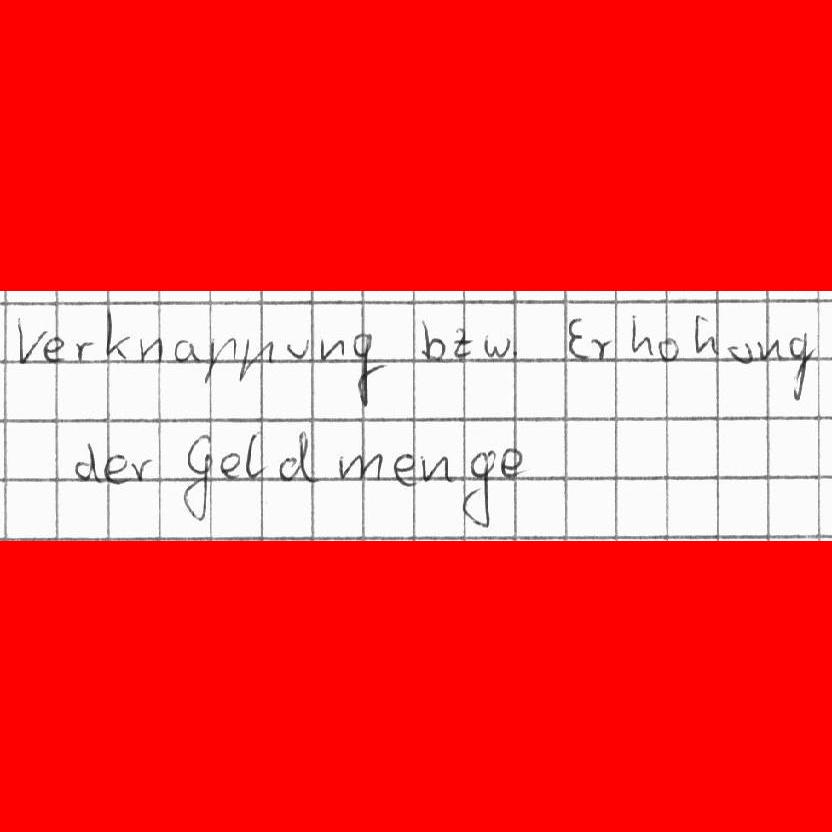 Verknappung bzw. Erhohung
der Geldmenge